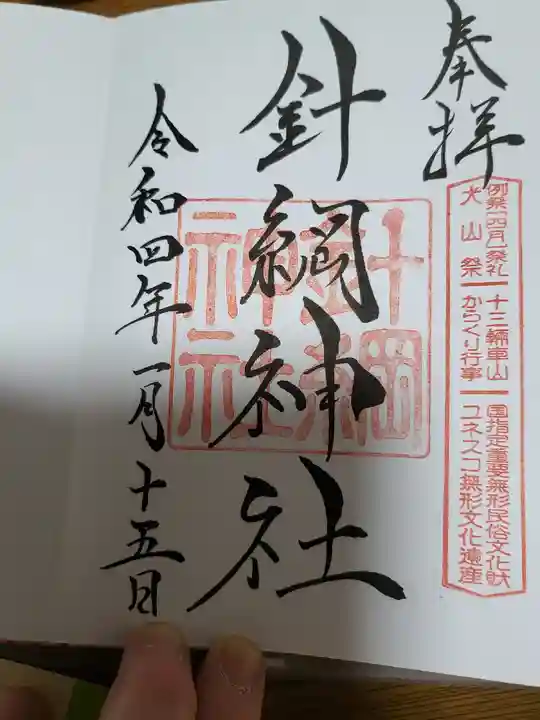 奉拝
例祭(四月)祭礼 十三輛車山 国指定重要無形民俗文化財
犬山祭 からくり行事 ユネスコ無形文化遺産
針綱神社
針綱神社
令和四年一月十五日